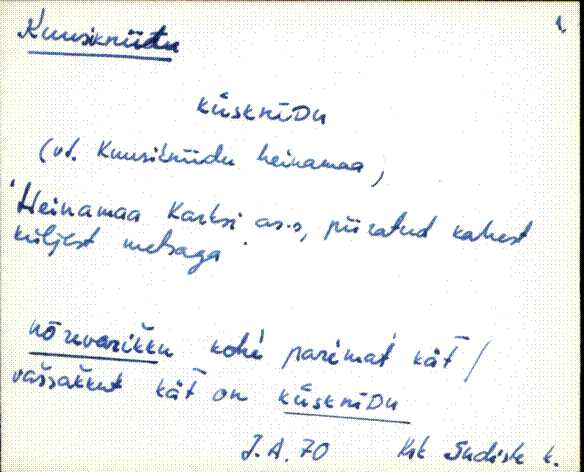 1.
Kuusikniidu
KÜSKNĪDU
(vt. Kuusikniidu heinamaa)
'Heinamaa Karksi as-s, piiratud kahest
küljest metsaga'
nõrevarikku kohe paremat kät /
vassakkut kät on küsknīdu
J.A. 70 Krk Sudiste k.